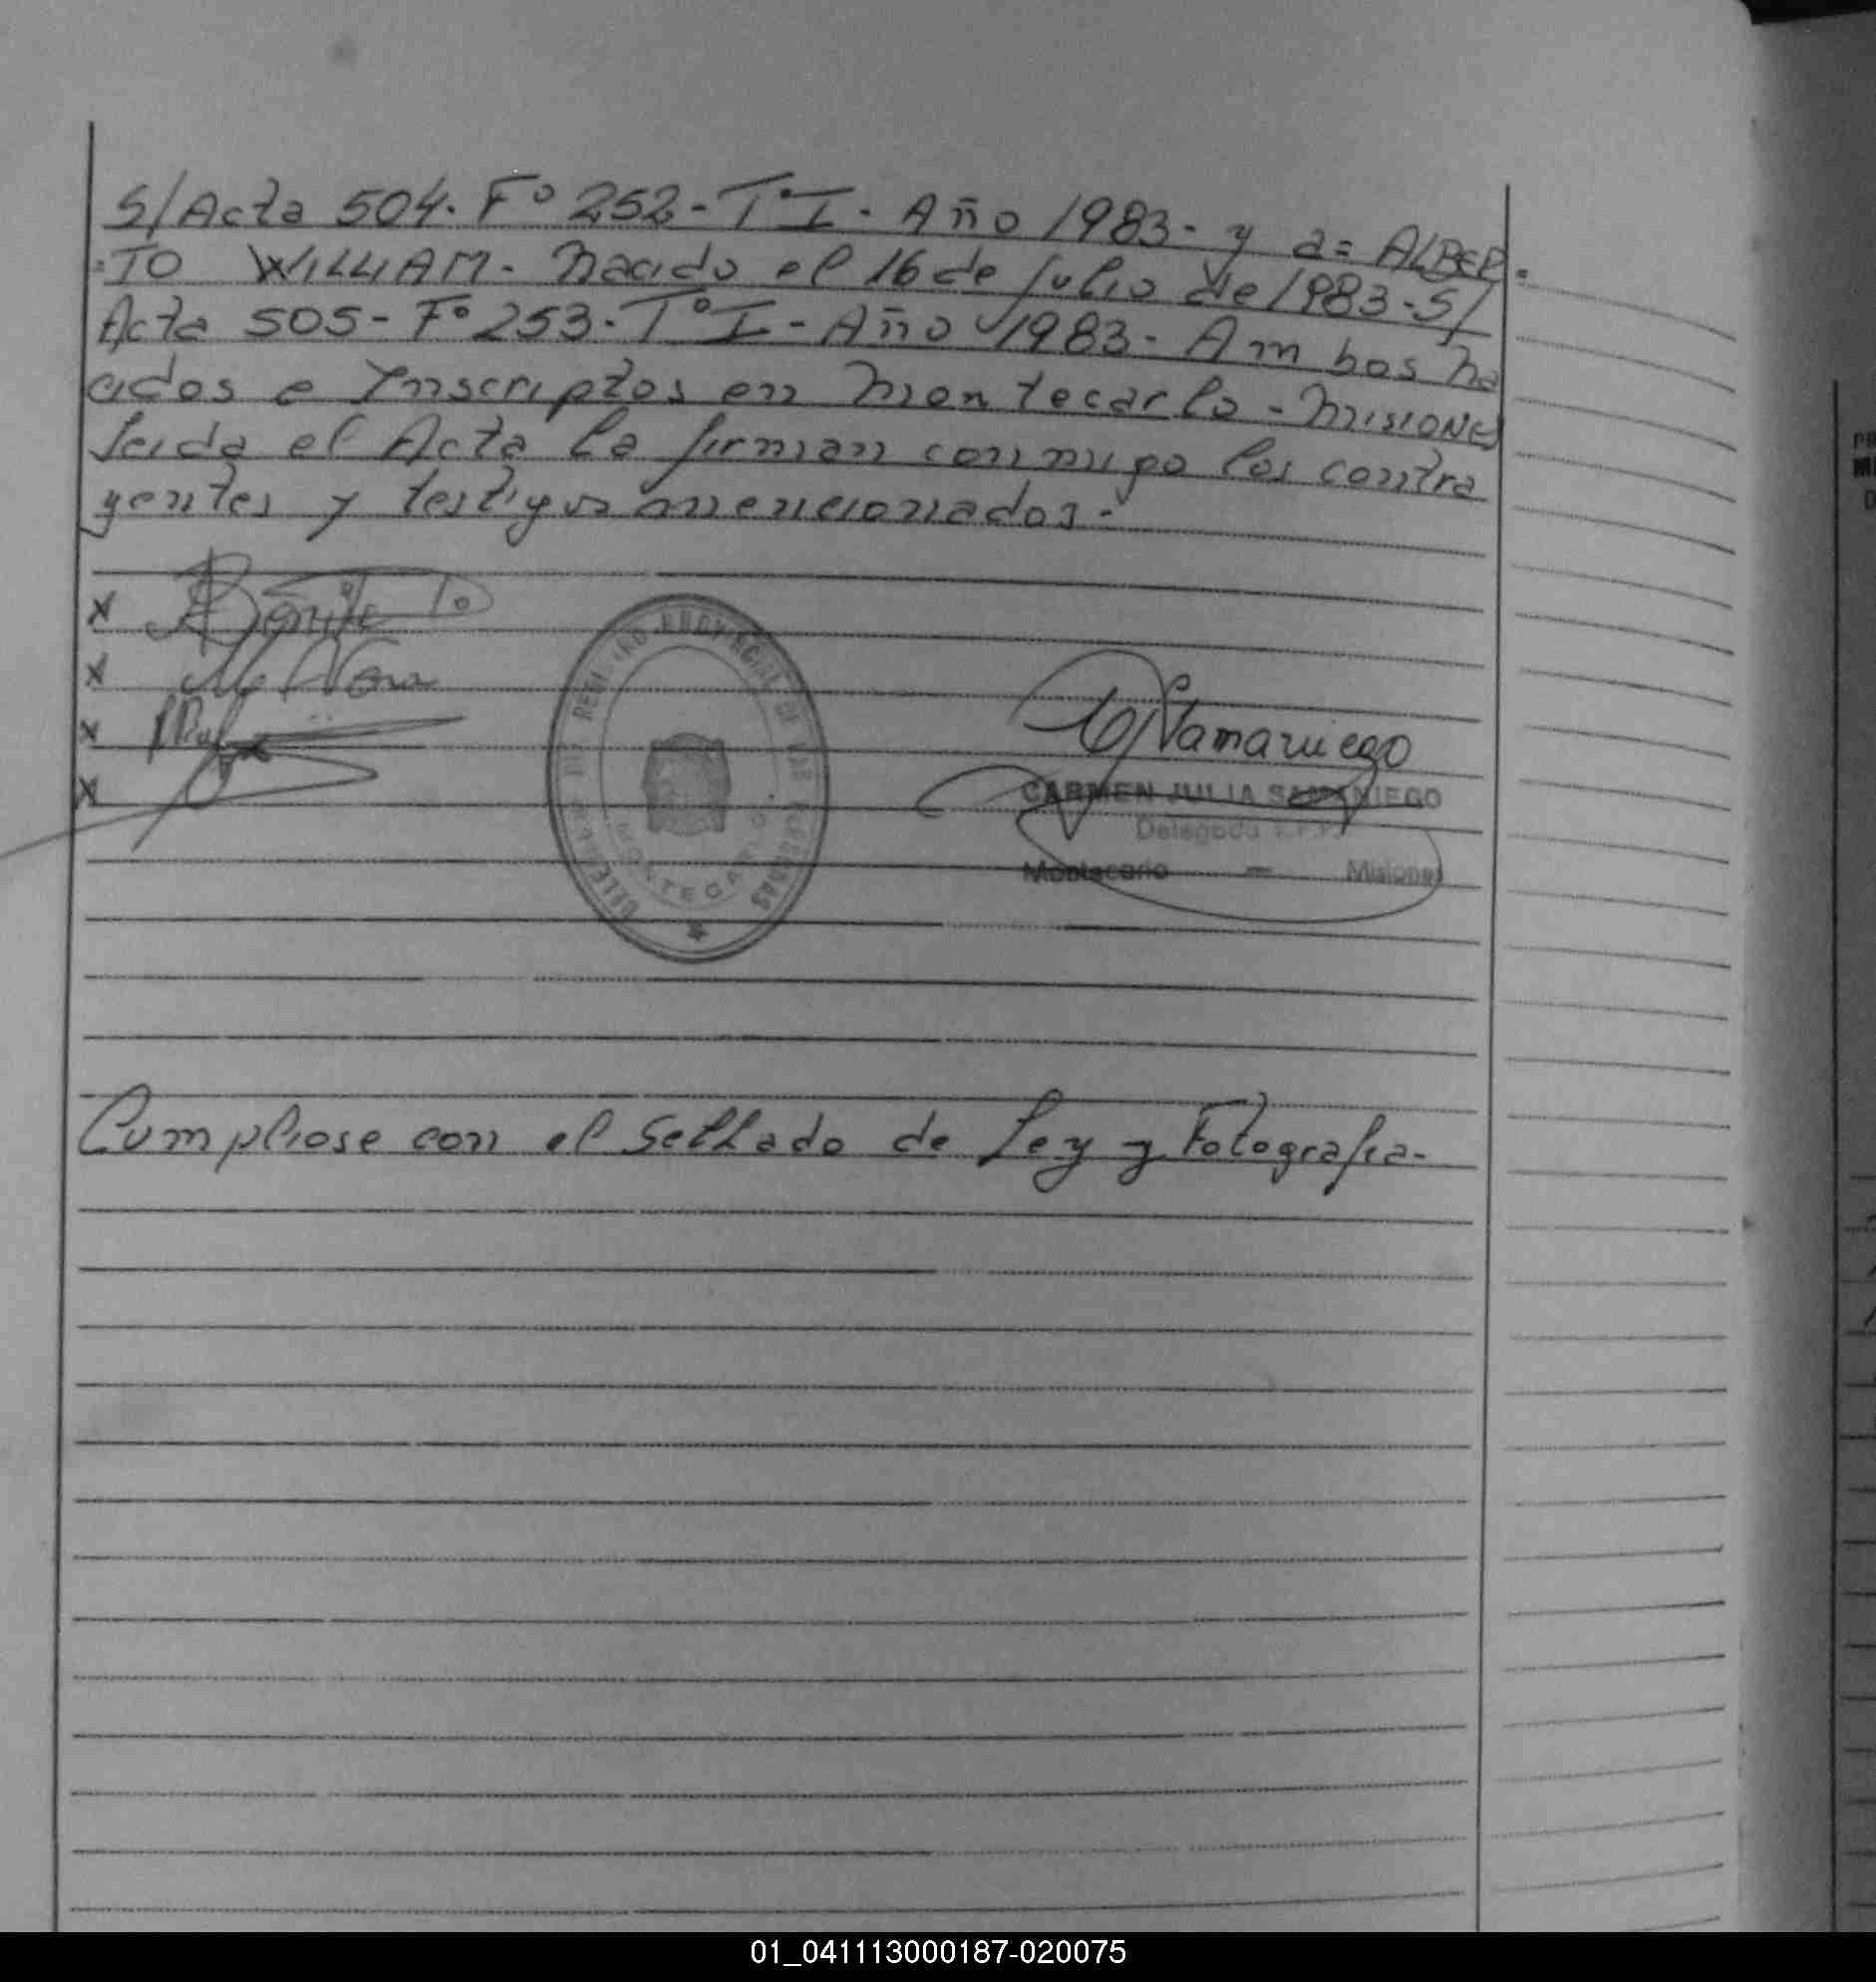 S/Acta 504. Fº 252 - Tº I - Año 1983 - y a = ALBER=
=TO WILLIAM - Nacido el 16 de Julio de 1983 - S/
Acta 505 - Fº 253 - Tº I - Año 1983 - Ambos na
cidos e Inscriptos en Montecarlo - MISIONES
Leida el Acta la firman conmigo los contra
yentes y testigos mencionados -
x
x
x
x
CARMEN JULIA SAMANIEGO
Delegada
Montecarlo — Misiones
REGISTRO PROVINCIAL DE LAS PERSONAS
MONTECARLO
Cumpliose con el Sellado de Ley y Fotografia-
01_041113000187-020075